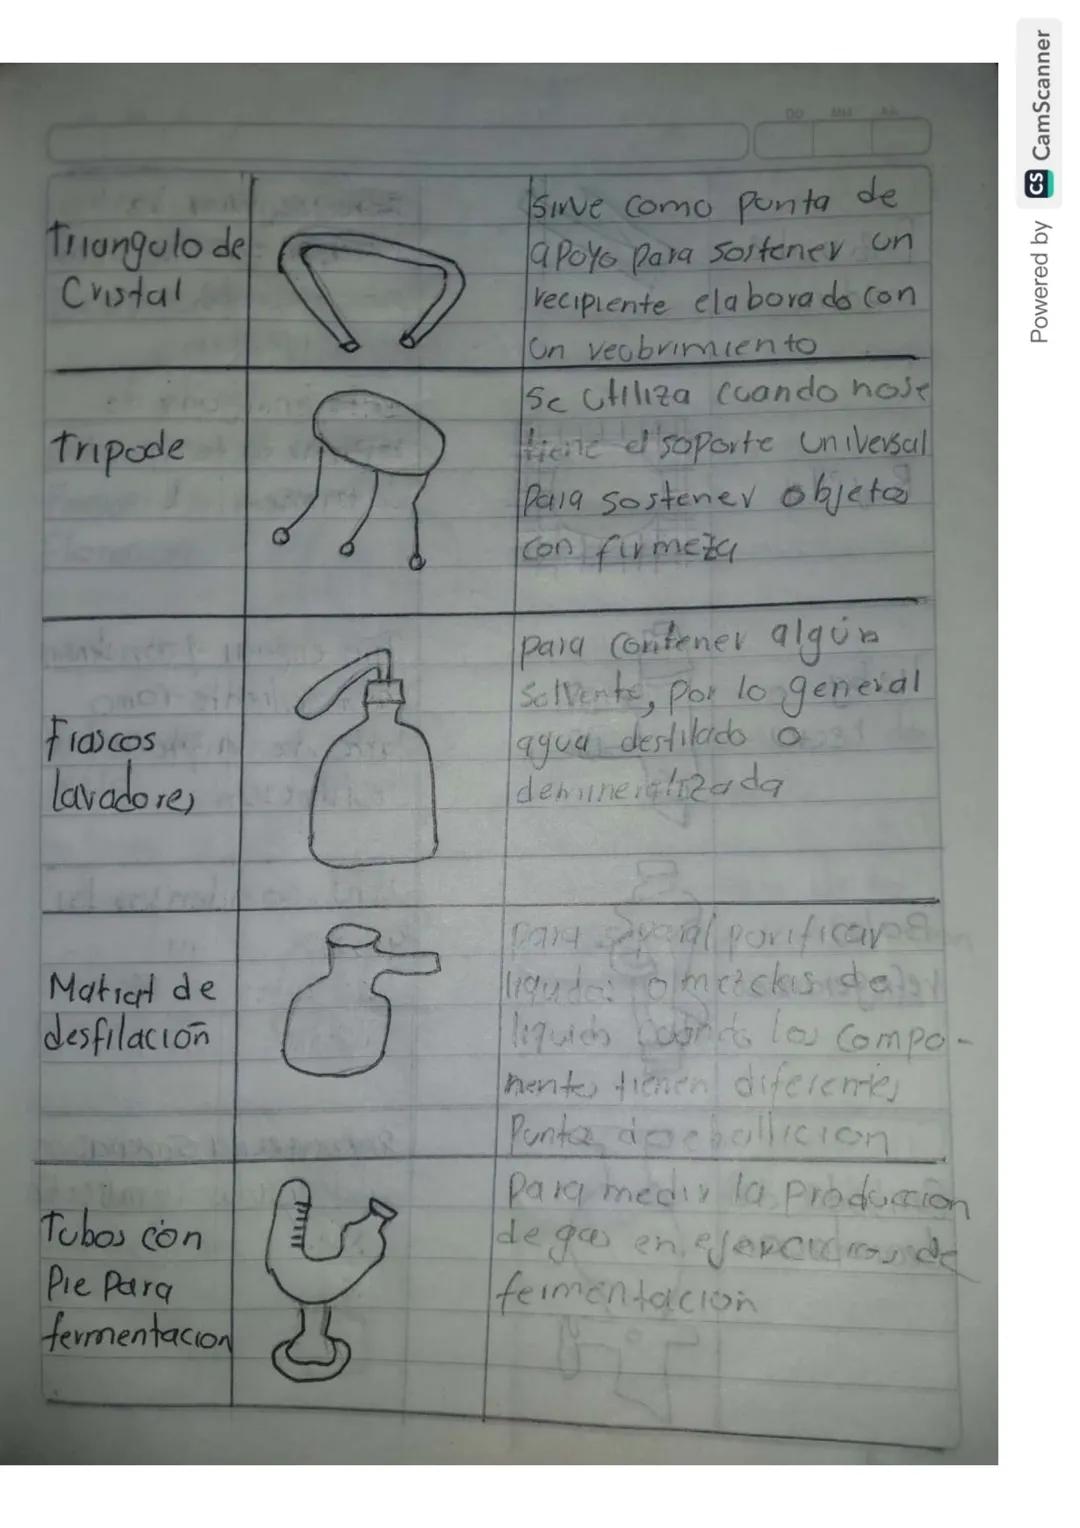 DD MM AA
Triangulo de
Cristal
Sirve como punta de
apoyo para sostener un
recipiente elaborado con
un recbrimiento
Tripode
Se utiliza cuando nose
tiene el soporte universal
Para sostener objetos
con firmeza
Frascos
lavadores
para contener algún
Solvente, por lo general
agua destilado o
demineralizada
Matriart de
desfilación
para general purificar
liquidos o mezclas de
liquids cuando los compo-
nentes tienen diferentes
Puntos de ebullicion
Tubos con
Pie Para
fermentacion
Para medir la Producción
de gas en de
fermentacion
Powered by CS CamScanner